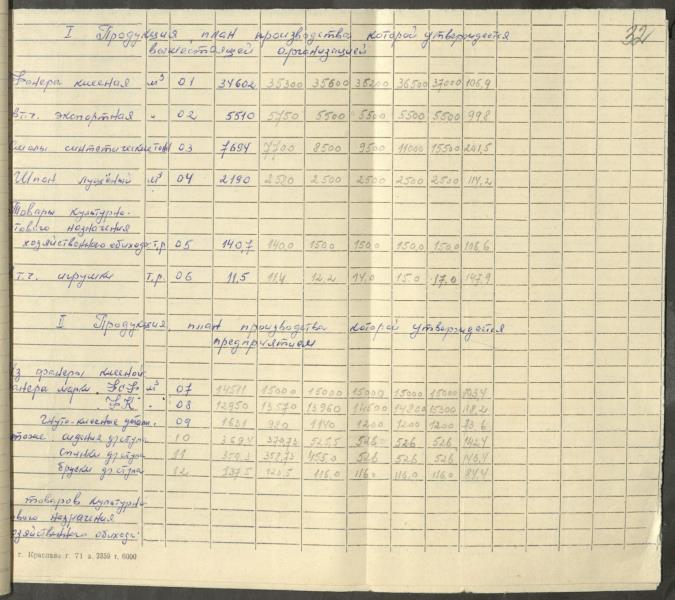 32
I Продукция, план производства которой утверждается
вышестоящей организацией
Фанера клееная м³ 01 34602 35300 35600 36200 36500 37000 106,9
Вт.ч. экспортная " 02 5510 5750 5500 5500 5500 5500 99,8
Смолы синтетические тонн 03 7694 7700 8500 9500 11000 15500 201,5
Шпон лущёный м³ 04 2190 2580 2500 2500 2500 2500 114,2
Товары культурно-
тового назначения
хозяйственного обихода т.р. 05 140,7 140,0 150,0 150,0 150,0 150,0 106,6
т.ч. игрушки т.р. 06 11,5 11,4 12,2 14,0 15,0 17,0 147,9
I Продукция, план производства которой утверждается
предприятием
Из фанеры клееной
фанера марки м³ 07 14511 15000 15000 15000 15000 15000 103,4
ФК " 08 12950 13570 13960 14600 14800 15300 118,2
Гнуто-клееные 09 1631 980 1140 1200 1200 1200 73,6
сидения д/стула 10 369,4 525,5 526 526 526 142,4
спинки д/стула 11 455,0 526 526 526
бруски д/стула 12 137,5 116,0 116,0 116,0 116,0 84,4
товаров культурно-
ового назначения
хозяйственного обихода:
г. Краслава г. 71 з. 2359 т. 6000